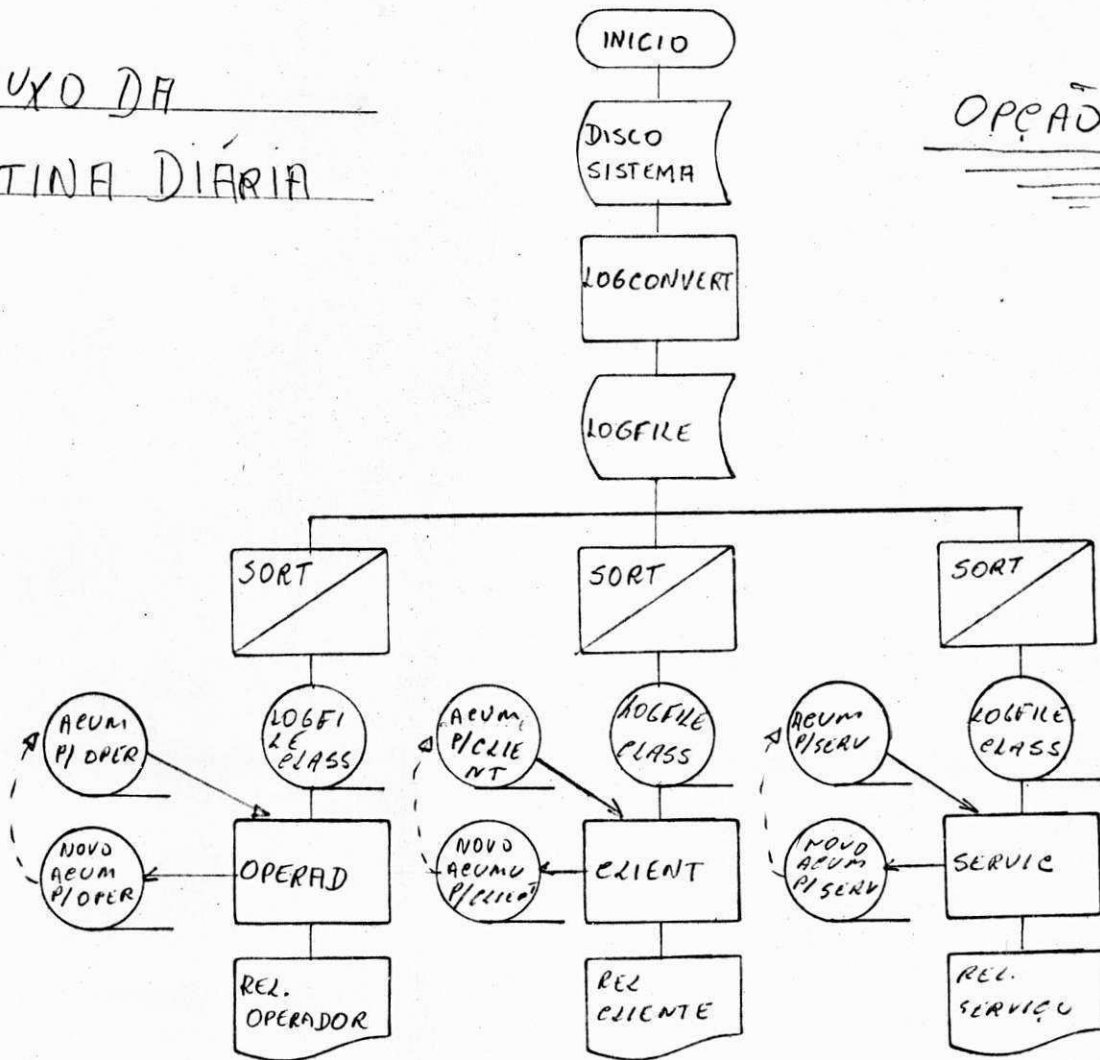 UXO DA
TINA DIÁRIA
OPÇÃO
INICIO
DISCO
SISTEMA
LOGCONVERT
LOGFILE
SORT
SORT
SORT
ACUM
P/OPER
LOGFI
LE
CLASS
ACUM
P/CLIE
NT
LOGFILE
CLASS
ACUM
P/SERV
LOGFILE
CLASS
NOVO
ACUM
P/OPER
OPERAD
NOVO
ACUMU
P/CLIENT
CLIENT
NOVO
ACUM
P/SERV
SERVIC
REL.
OPERADOR
REL
CLIENTE
REL.
SERVIÇO